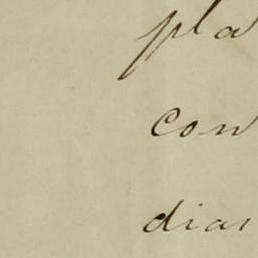 pla
con
dian